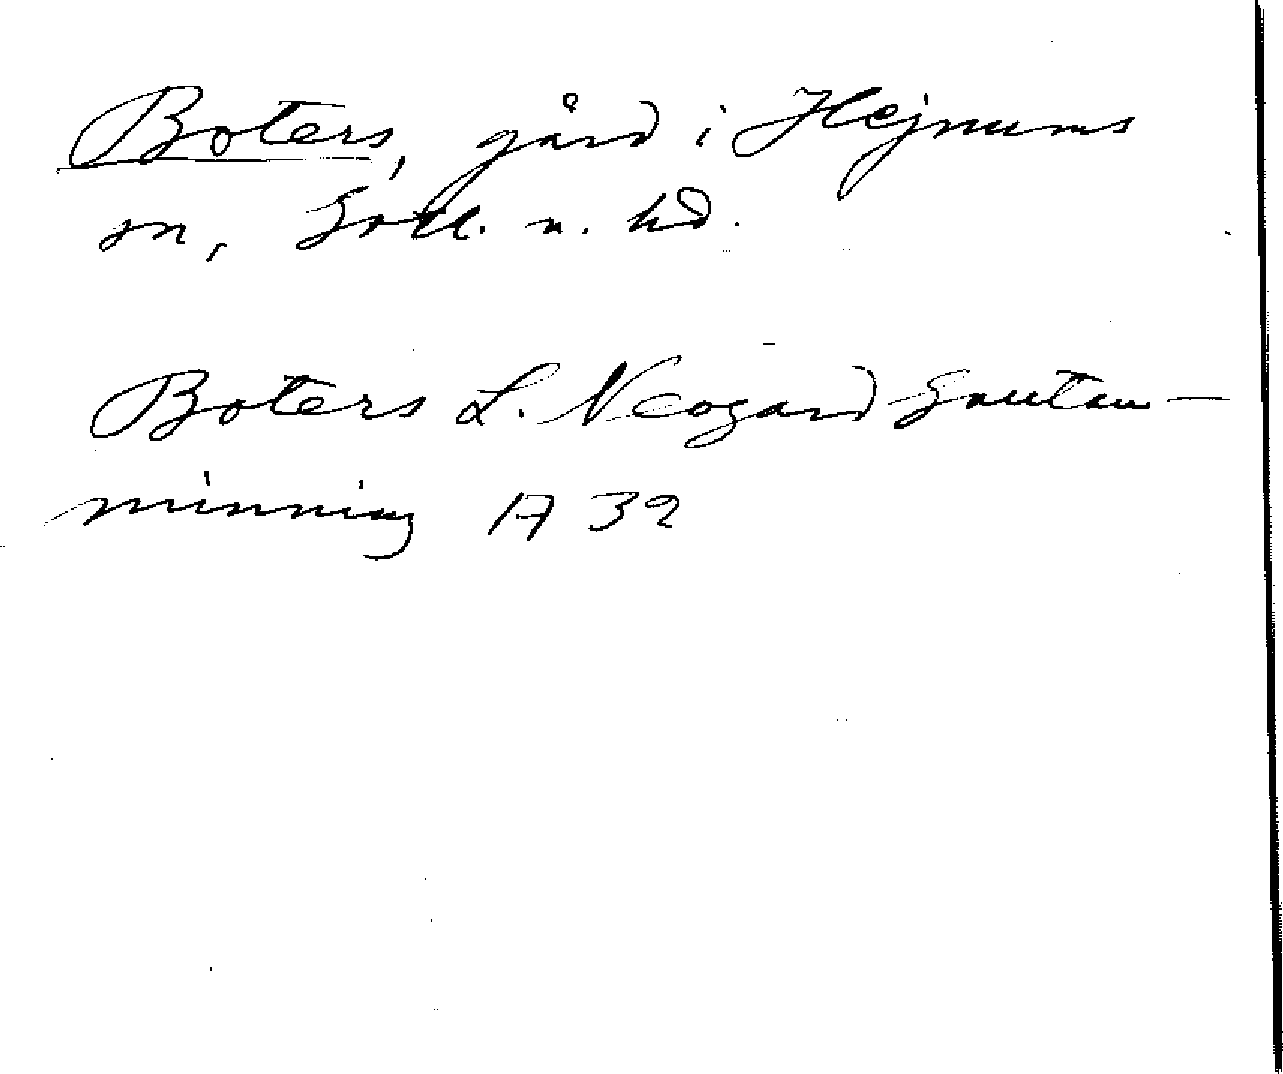 Boters, gård i Hejnums
sn, Gotl. n. hd.
Boters L. Neogard Gautau-
minning A 32